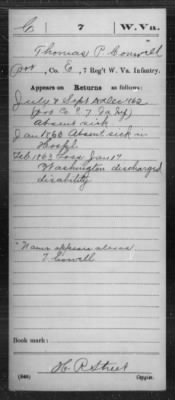 C | 7 | W. Va.
Thomas P Conwell
Co. E, 7 Reg't W. Va. Infantry.
Appears on
Returns as follows:
July & Sept to Dec 1862
Absent sick
Jan 1863 Absent sick in
Hosp'l
Feb. 1863 Loss Jan 17
Washington discharged
disability
" Name appears also as
T. Cowell
Book mark:
H. R. Street
(546) Copyist.